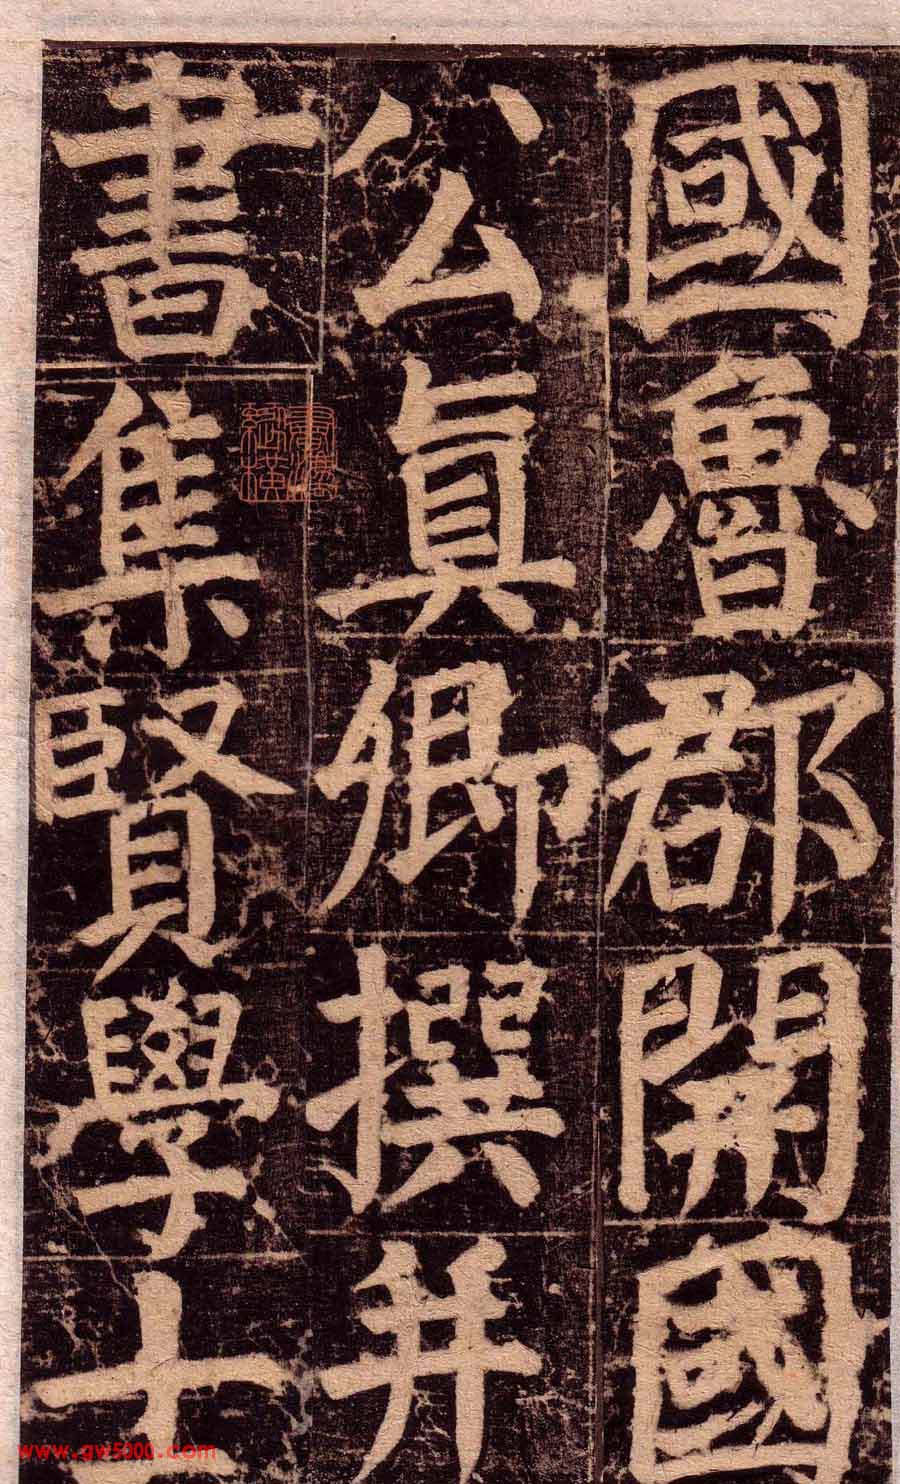 國魯郡開國
公真卿撰并
書集賢學士
www.gw5000.com